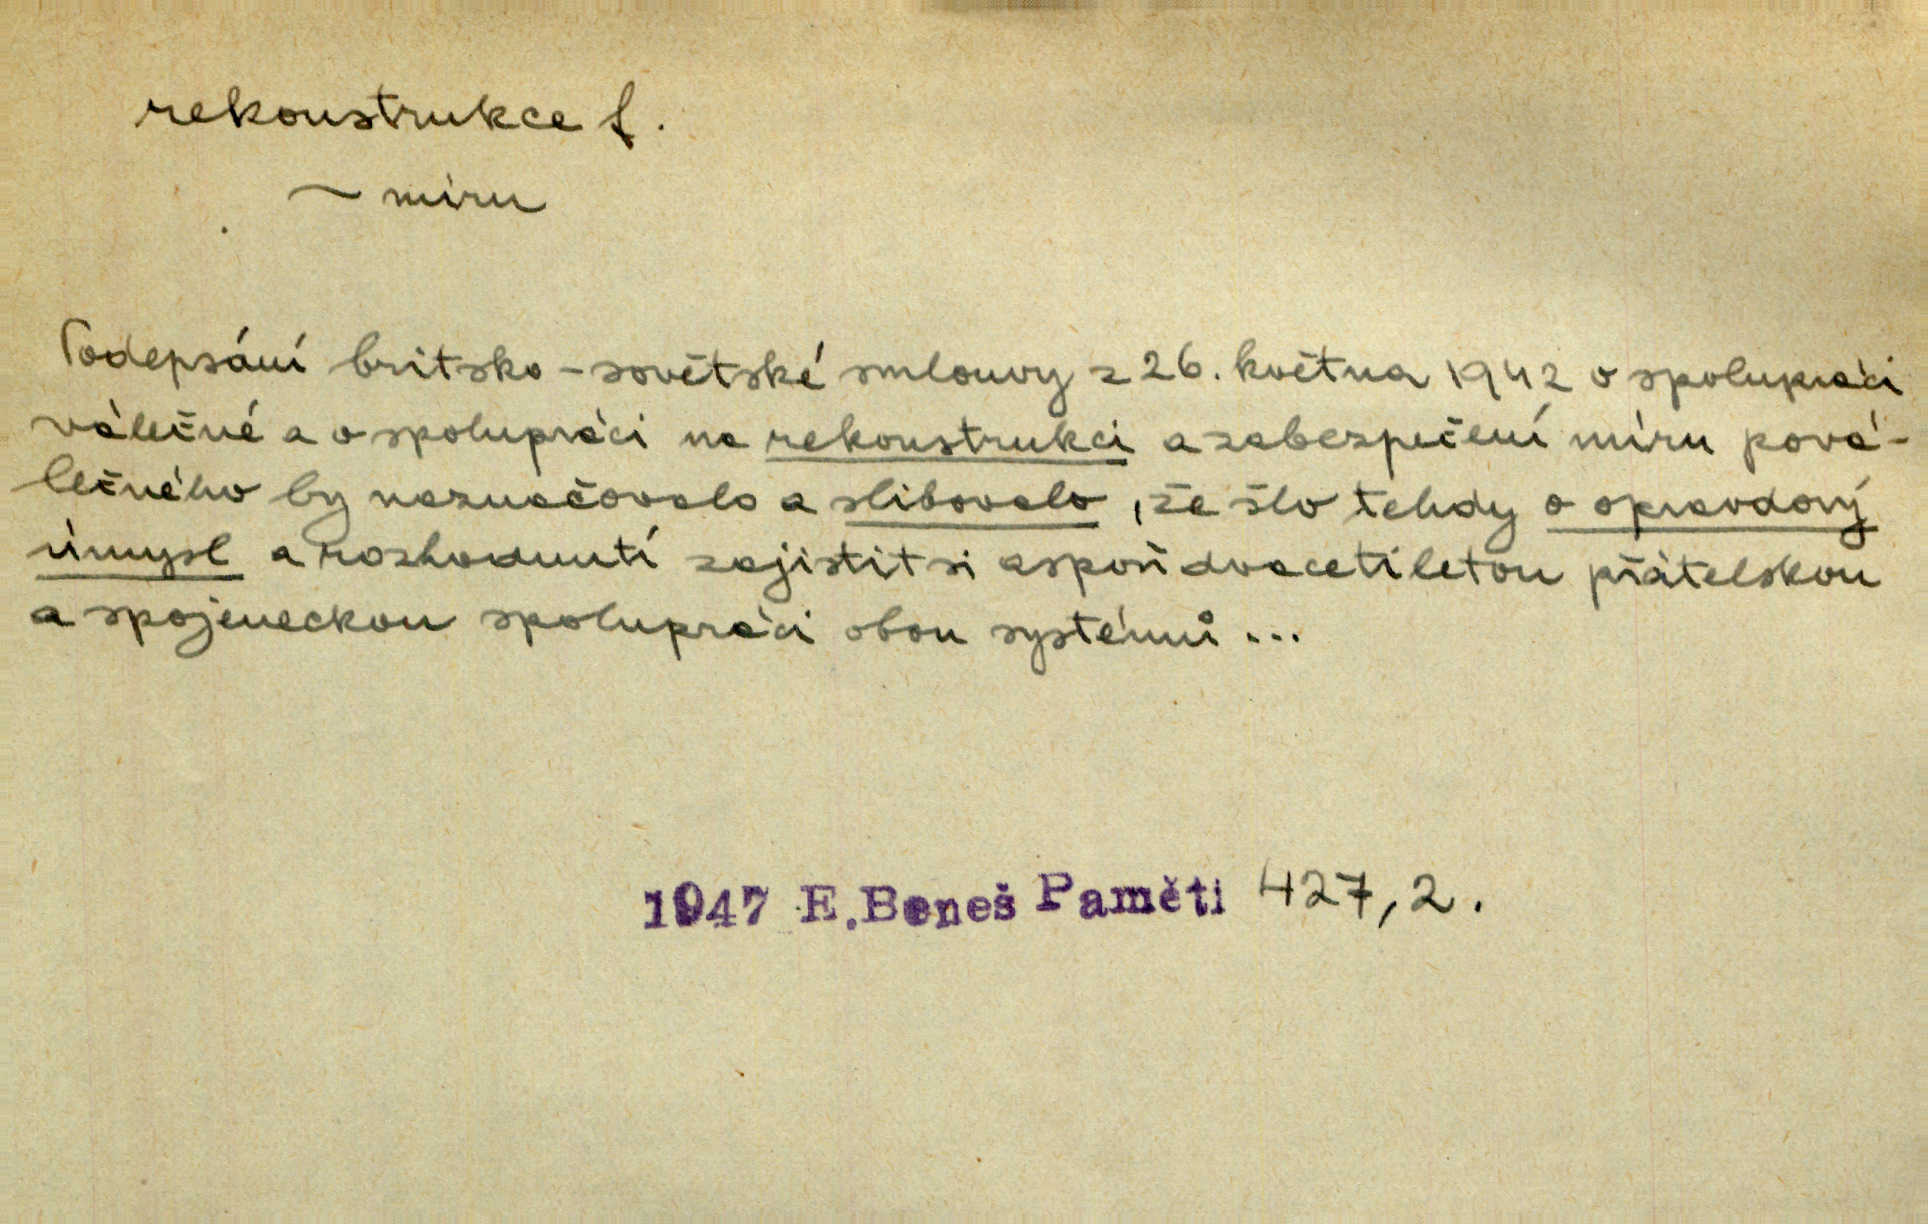 rekonstrukce f.
~ míru
Podepsání britsko-sovětské smlouvy z 26. května 1942 o spolupráci
válečné a o spolupráci na rekonstrukci a zabezpečení míru pová-
lečného by naznačovalo a slibovalo, že šlo tehdy o opravdový
úmysl a rozhodnutí zajistit si aspoň dvacetiletou přátelskou
a spojeneckou spolupráci obou systémů ...
1947 E.Beneš Paměti 427,2.